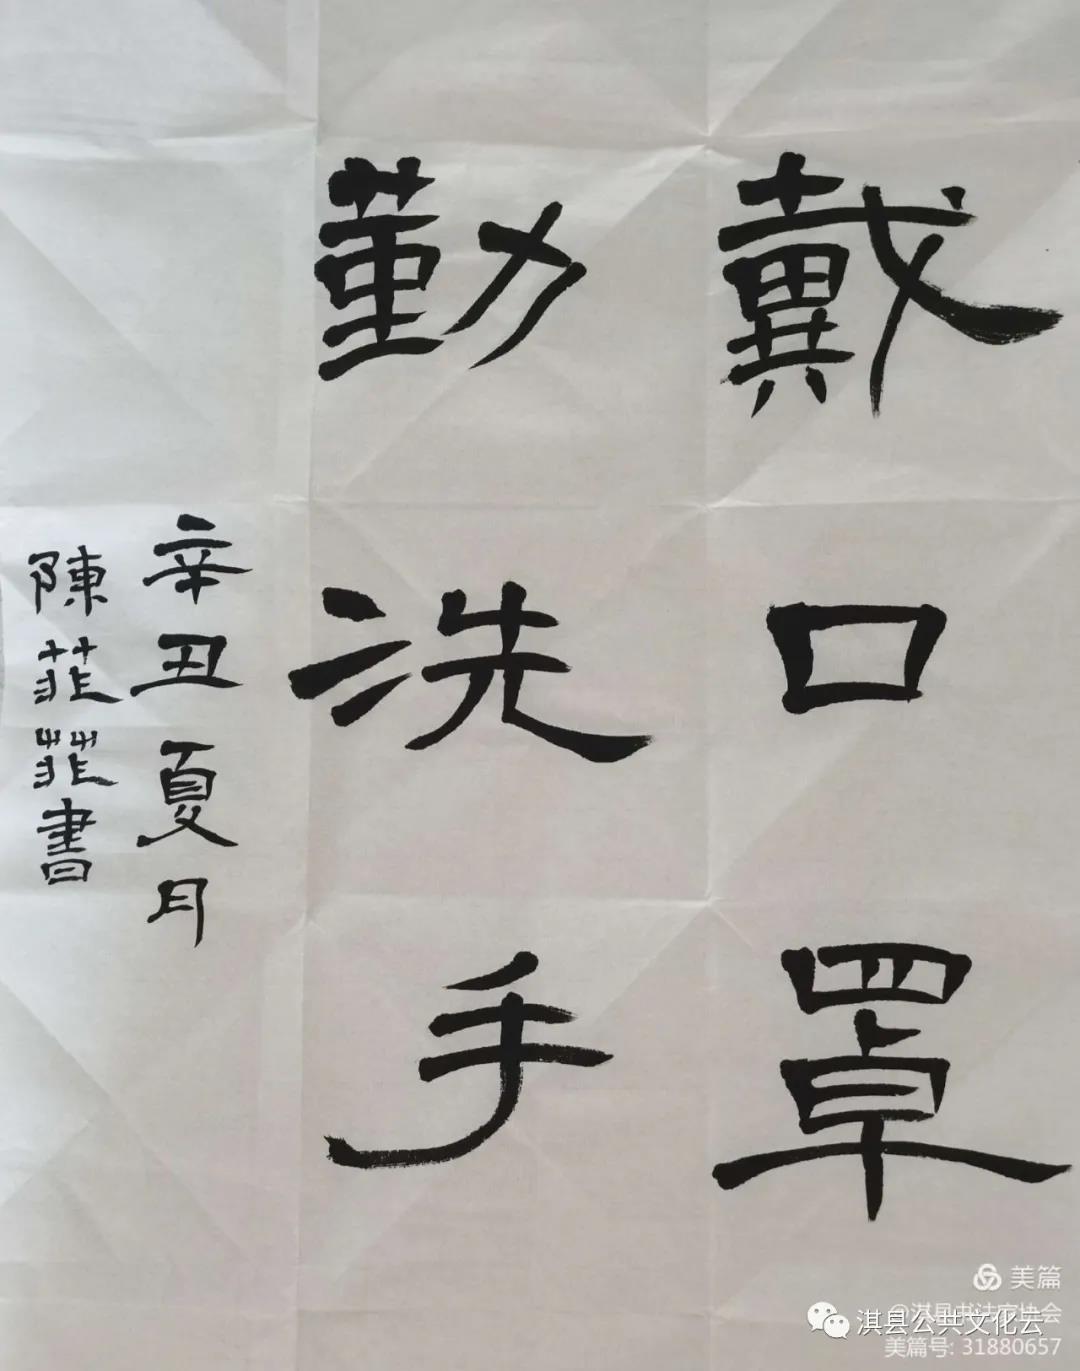 戴口罩
勤洗手
辛丑夏月
陳菲菲書
美篇
@淇县书法家协会
淇县公共文化云
美篇号: 31880657